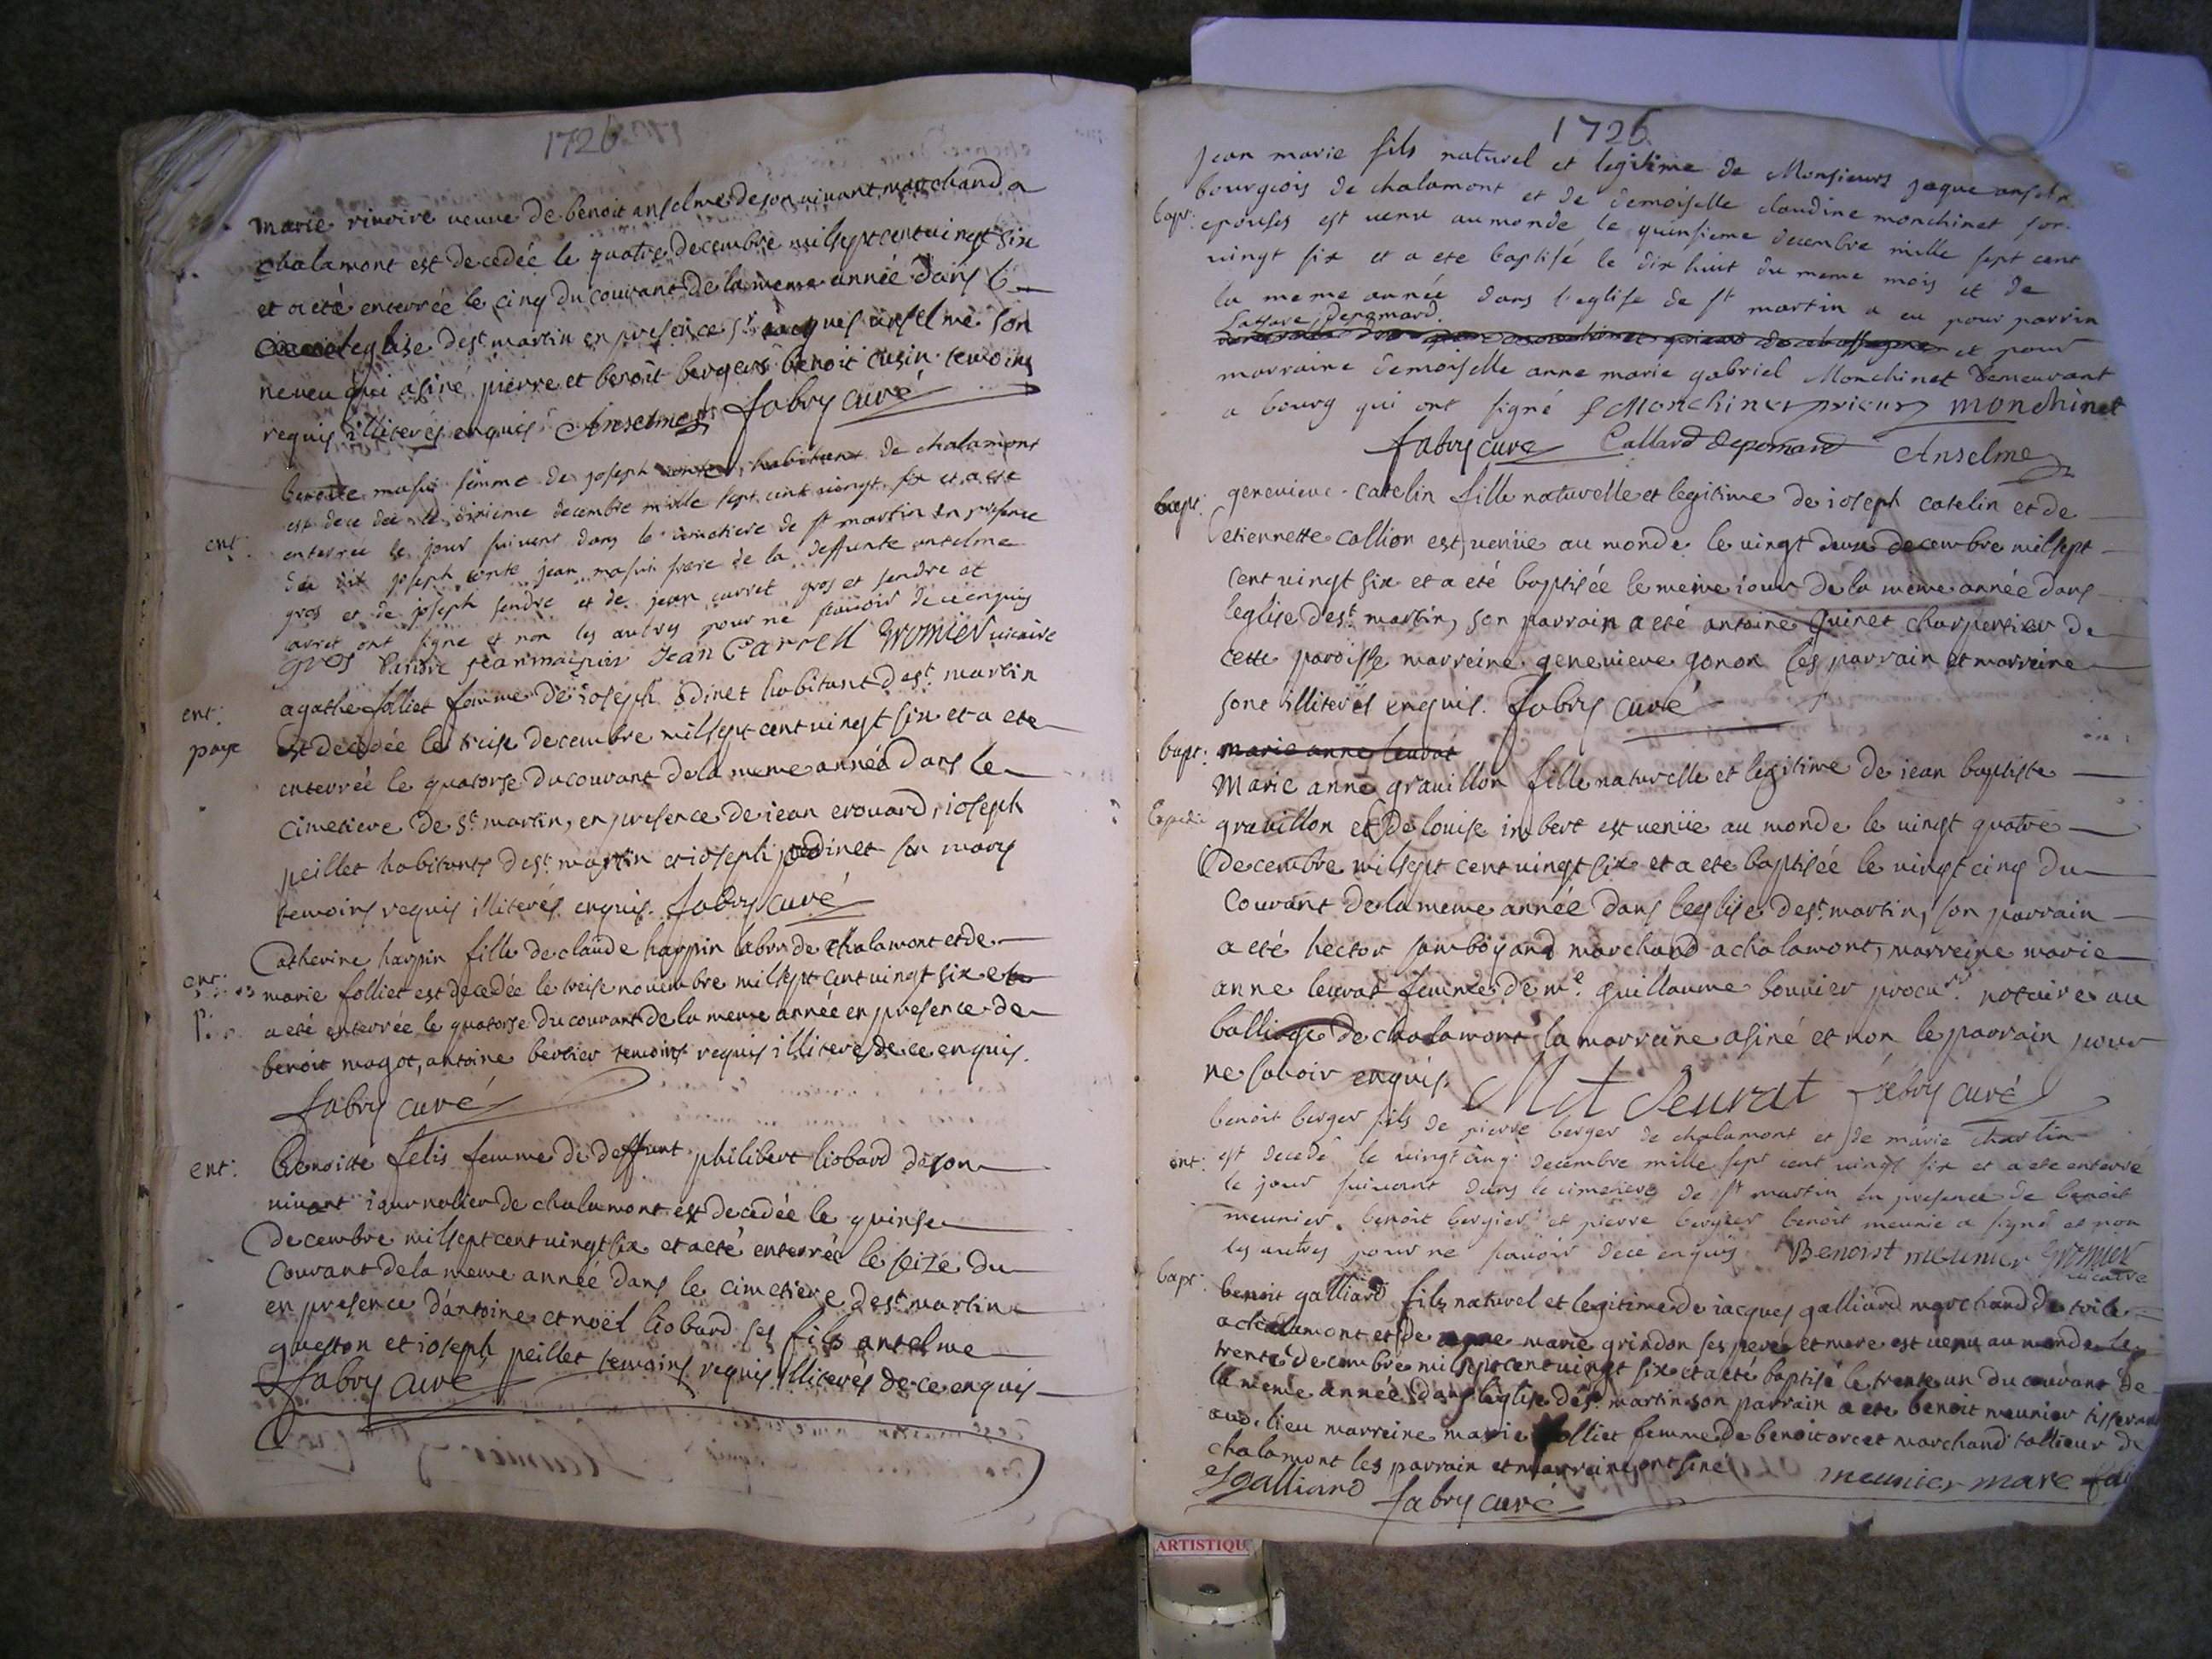 1726
marie rivoire veuve de benoit anselme de son vivant marchand a
chalamont est decedée le quatre decembre mil sept cent vingt six
et a été enterrée le cinq du courant de la meme année dans l
eglise de st martin en presence sr jacques anselme son
neveu qui a siné pierre et benoit bergers benoit cusin temoins
requis illiterés enquis Anselme fabry curé
ent:
femme de joseph habitant de chalamont
est decedée le decembre mille sept cent vingt six et a ete
enterrée le jour suivant dans le cimetiere de st martin en presence
du dit joseph jean masuir frere de la deffunte anselme
gros et de joseph fendre et de jean carret gros et fendre et
carret ont signe et non les autres pour ne scavoir de ce enquis
gros Jean Carrell Gromier vicaire
ent:
paye
agathe folliet femme de ioseph odinet habitant de st martin
est decedée le treise decembre mil sept cent vingt six et a ete
enterrée le quatorse du courant de la meme année dans le
cimetiere de st martin, en presence de iean erouard, ioseph
peillet habitants de st martin et ioseph odinet son mary
temoins requis illiterés enquis. fabry curé
ent:
Catherine harpin fille de claude harpin labr de chalamont et de
marie folliet est decedée le treise novembre mil sept cent vingt six et
a eté enterrée le quatorse du courant de la meme année en presence de
benoit magot, antoine bertier temoins requis illiteres de ce enquis.
fabry curé
ent:
Benoitte felis femme de deffunt philibert liobard de son
vivant iournalier de chalamont est decedée le quinse
decembre mil sept cent vingt six et a eté enterrée le seize du
courant de la meme année dans le cimetiere de st martin
en presence d'antoine et noël liobard ses fils anselme
gueston et ioseph peillet temoins requis illiterés de ce enquis
fabry curé
1726
Jean marie fils naturel et legitime de Monsieurs jaque
bapt:
bourgeois de chalamont et de demoiselle claudine monchinet
epouses est venu au monde le quinsieme decembre mille sept cent
vingt six et a ete baptisé le dix huit du meme mois et de
la meme année dans l'eglise de st martin a eu pour parrin
depomard
et pour
marraine demoiselle anne marie gabriel Monchinet demeurant
a bourg qui ont signé Monchinet prieur monchinet
fabry curé Callard depomard Anselme
bapt:
genevieve catelin fille naturelle et legitime de ioseph catelin et de
etiennette collion est venüe au monde le vingt deux decembre mil sept
cent vingt six et a été baptisée le meme iour de la même année dans
l'eglise de st martin, son parrain a eté antoine Quinet charpentier de
cette paroisse marreine genevieve gonon les parrain et marreine
sont illiterés enquis. fabry curé
bapt:
marie anne leurat
Marie anne gravillon fille naturelle et legitime de iean baptiste
Expedié
gravillon et de louise imbert est venüe au monde le vingt quatre
decembre mil sept cent vingt six et a ete baptisée le vingt cinq du
courant de la meme année dans l'eglise de st martin, son parrain
a eté hector marchand a chalamont, marreine marie
anne leurat femme de me guillaume bouvier procur notaire au
balliage de chalamont la marreine a siné et non le parrain pour
ne savoir enquis. M A Leurat fabry curé
benoit berger fils de pierre berger de chalamont et de marie charlin
ent:
est decedé le vingt cinq decembre mille sept cent vingt six et a ete enterré
le jour suivant dans le cimetiere de st martin en presence de benoit
meunier. benoit bergier et pierre bergier benoit meunie a signé et non
les autres pour ne scavoir de ce enquis Benoist meunier Gromier
vicaire
bapt:
benoit galliard fils naturel et legitime de iacques galliard marchand de toile
a chalamont et de marie grindon ses pere et mere est venu au monde le
trente decembre mil sept cent vingt six et a eté baptisé le trente un du courant de
la meme année dans l'eglise de st martin son parrain a ete benoit meunier tisserand
au lieu marreine marie folliet femme de benoit orcet marchand tallieur de
chalamont les parrain et marreine ont siné meunier mare
J galliard fabry curé
ARTISTIQU